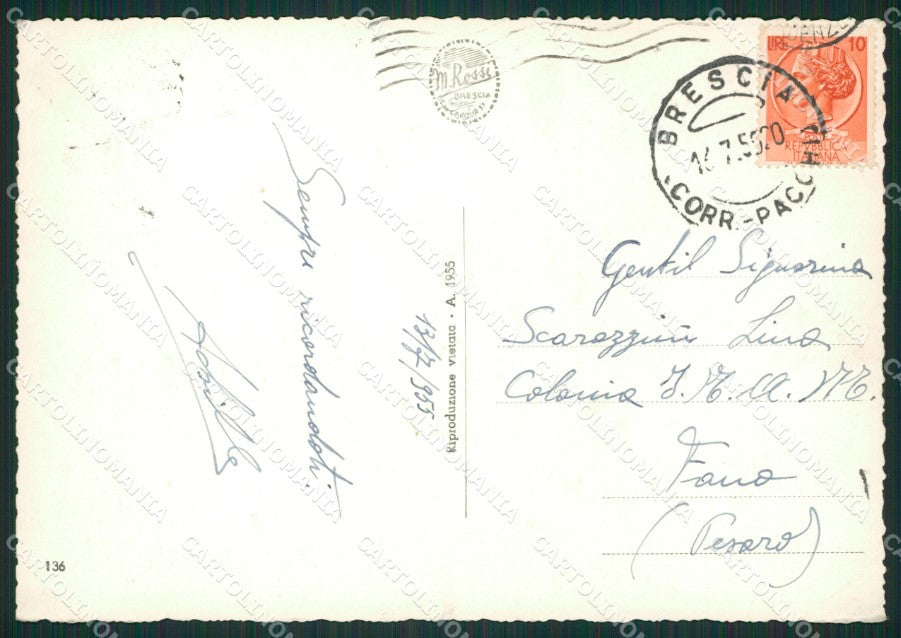 M. Rossi
BRESCIA
LIRE 10
REPVBBLICA
ITALIANA
BRESCIA
14.7.55 20
CORR.-PACCHI
Sempre ricordandoti.
13/7/955
Riproduzione vietata - A. 1955
Gentil Signorina
Scarazzini Lina
Colonia I.N.A.M.
Fano
(Pesaro)
136
CARTOLINOMANIA